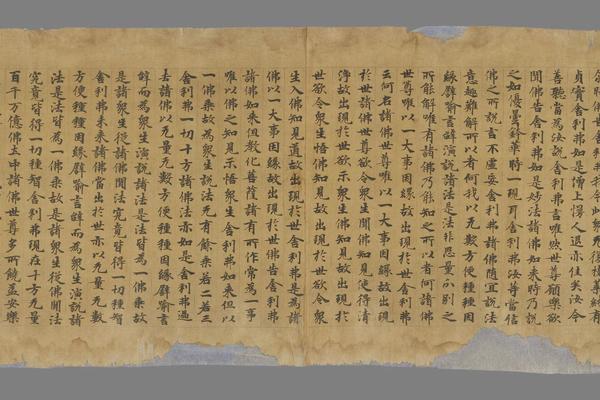 貞實舍利弗如是增上慢人退亦佳矣汝今
善聽當為汝說舍利弗言唯然世尊願樂欲
聞佛告舍利弗如是妙法諸佛如來時乃說
之如優曇鉢華時一現耳舍利弗汝等當信
佛之所說言不虛妄舍利弗諸佛隨宜說法
意趣難解所以者何我以无數方便種種因
緣譬喻言辭演說諸法是法非思量分別之
所能解唯有諸佛乃能知之所以者何諸佛
世尊唯以一大事因緣故出現於世舍利弗
云何名諸佛世尊唯以一大事因緣故出現
於世諸佛世尊欲令衆生開佛知見使得清
淨故出現於世欲示衆生佛知見故出現於
世欲令衆生悟佛知見故出現於世欲令衆
生入佛知見道故出現於世舍利弗是為諸
佛以一大事因緣故出現於世佛告舍利弗
諸佛如來但教化菩薩諸有所作常為一事
唯以佛之知見示悟衆生舍利弗如來但以
一佛乘故為衆生說法无有餘乘若二若三
舍利弗一切十方諸佛法亦如是舍利弗過
去諸佛以无量无數方便種種因緣譬喻言
辭而為衆生演說諸法是法皆為一佛乘故
是諸衆生從諸佛聞法究竟皆得一切種智
舍利弗未來諸佛當出於世亦以无量无數
方便種種因緣譬喻言辭而為衆生演說諸
法是法皆為一佛乘故是諸衆生從佛聞法
究竟皆得一切種智舍利弗現在十方无量
百千万億佛土中諸佛世尊多所饒益安樂